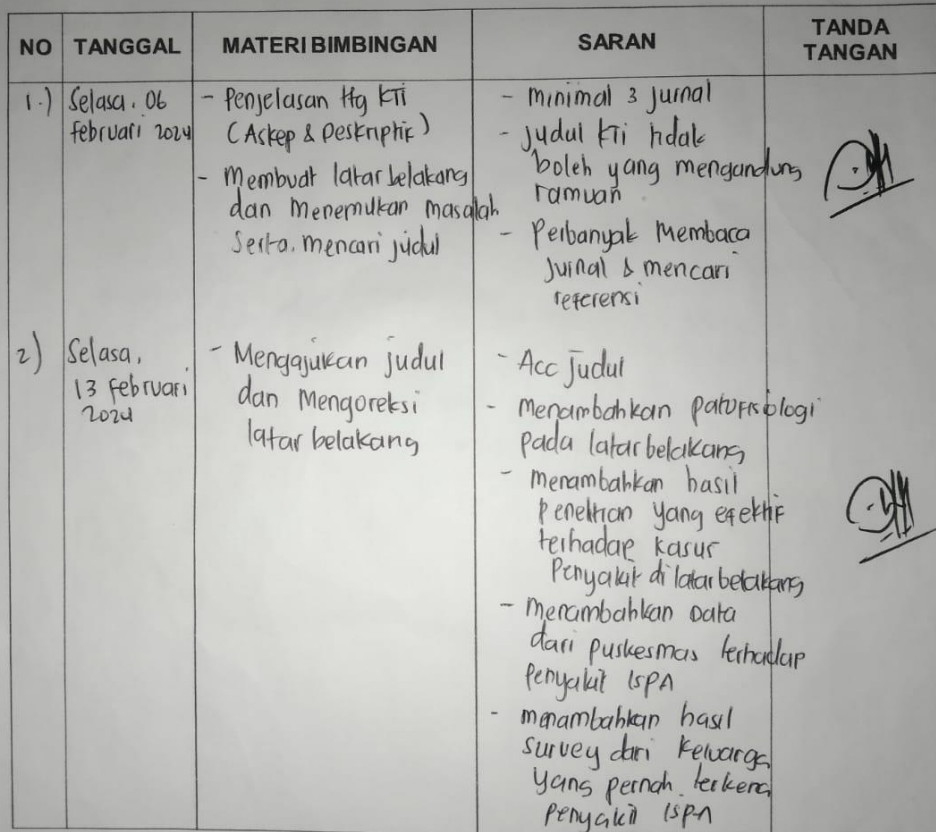 NO TANGGAL MATERI BIMBINGAN SARAN TANDA TANGAN
1.) Selasa, 06
februari 2024
- Penjelasan Htg KTI
(Askep & Deskriptif)
- Membuat latar belakang
dan Menemukan Masalah
Serta mencari judul
- Minimal 3 jurnal
- judul KTI tidak
boleh yang mengandung
ramuan
- Perbanyak Membaca
Jurnal & mencari
referensi
2) Selasa,
13 februari
2024
- Mengajukan judul
dan Mengoreksi
latar belakang
- Acc Judul
- Menambahkan patofisiologi
pada latar belakang
- menambahkan hasil
penelitian yang efektif
terhadap kasus
Penyakit di latar belakang
- menambahkan Data
dari puskesmas terhadap
penyakit ISPA
- menambahkan hasil
survey dari keluarga
yang pernah terkena
penyakit ISPA